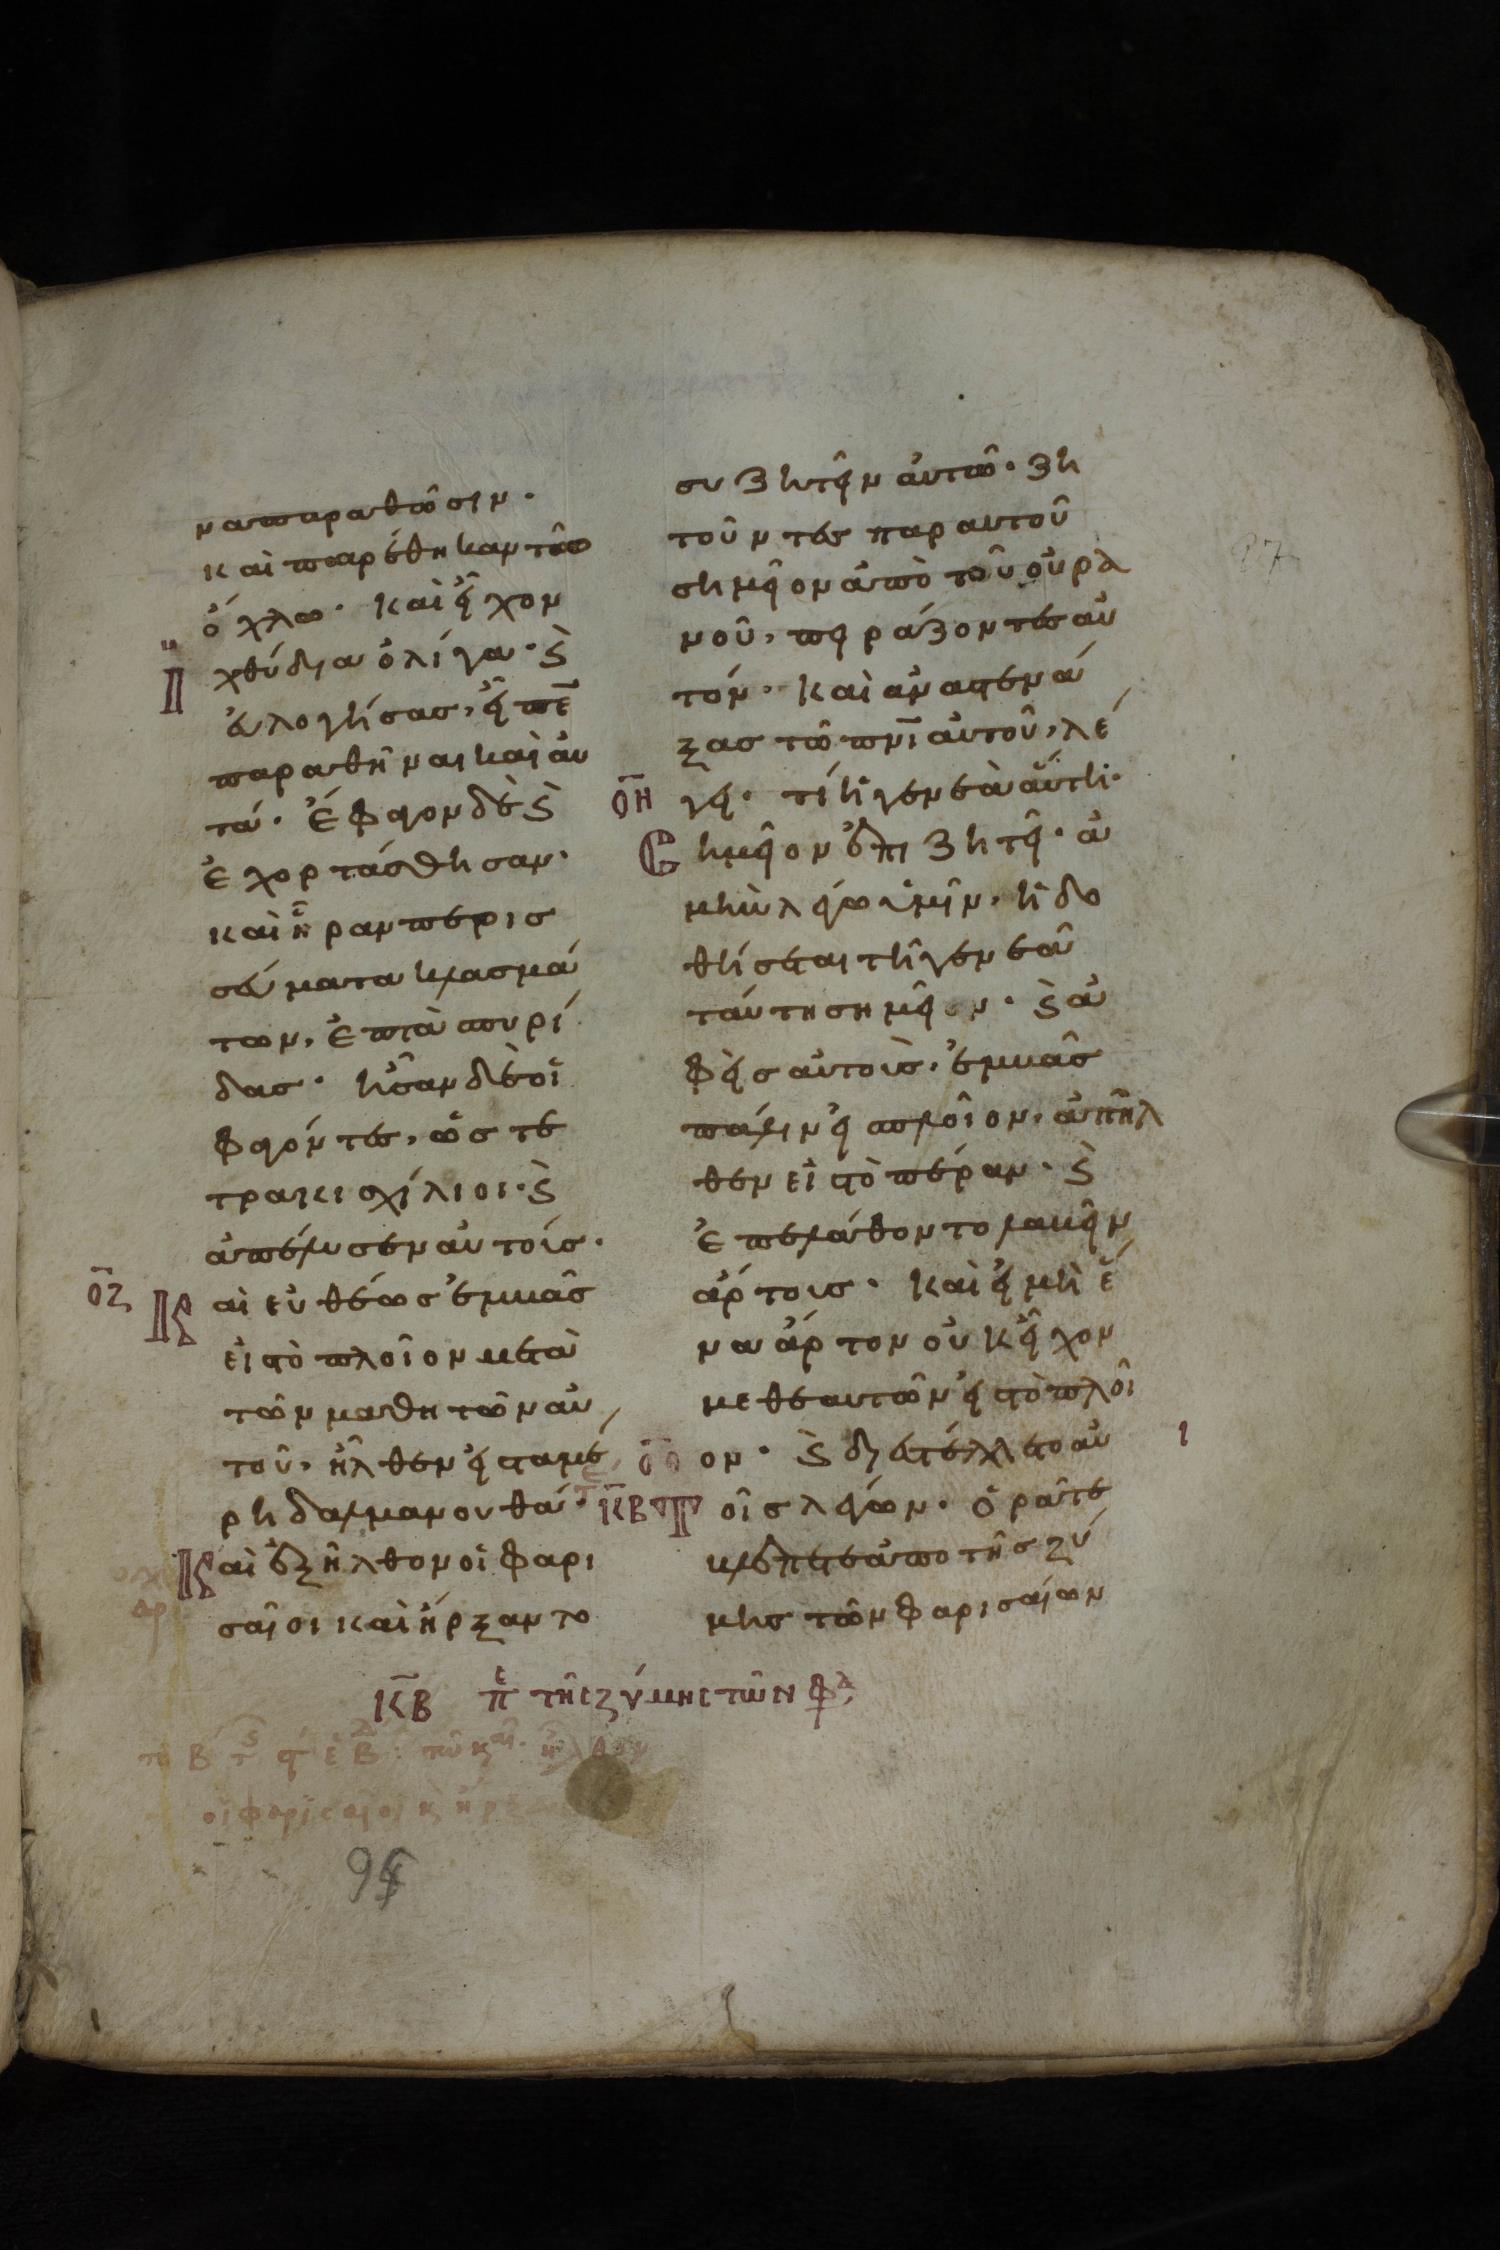 να παραθῶσιν·
καὶ παρέθηκαν τῶ
ὄχλω· καὶ εἶχον
ἰχθύδια ὀλίγα· ϗ
εὐλογήσας, εἶπε
παραθῆναι καὶ αὐ
τά· ἔφαγον δὲ ϗ
ἐχορτάσθησαν·
καὶ ἦραν περισ
σεύματα κλασμά
των, ἑπτὰ σπυρί
δας· ἦσαν δὲ οἱ
φαγόντες, ὡς τε
τρακισχίλιοι· ϗ
ἀπέλυσεν αὐτούς·
οζ Καὶ εὐθέως ἐμβὰς
εἰς τὸ πλοῖον μετὰ
τῶν μαθητῶν αὐ
τοῦ, ἦλθεν εἰς τὰ μέ
ρη δαλμανουθά·
Καὶ ἐξῆλθον οἱ φαρι
σαῖοι καὶ ἤρξαντο
συζητεῖν αὐτῶ· ζη
τοῦντες παρ αυτοῦ
σημεῖον ἀπὸ τοῦ οὐρα
νοῦ, πειράζοντες αὐ
τόν· καὶ αναστενά
ξας τῶ πνι αὐτοῦ, λέ
οη γει· τί ἡ γενεὰ αὕτη·
Σημεῖον ἐπιζητεῖ· ἀ
μὴν λέγω ὑμῖν, εἰ δο
θήσεται τῆ γενεᾶ
ταύτη σημεῖον· ϗ ἀ
φεὶς αὐτοὺς, ἐμβὰς
πάλιν εἰς πλοῖον, ἀπῆλ
θεν εἰς τὸ πέραν· ϗ
ἐπελάθοντο λαβεῖν
ἄρτους· καὶ εἰ μὴ ἕ
να ἄρτον οὐκ εἶχον
μεθ εαυτῶν εἰς τὸ πλοῖ
οθ ον· ϗ διεστέλλετο αὐ
κβ Τοῖς λέγων· ὁρᾶτε
βλέπετε ἀπο τῆς ζύ
μης τῶν φαρισαίων
κβ πε τῆς ζύμης τῶν φα
οἱ φαρισαῖοι ϗ